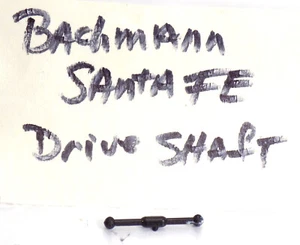 BAchmann
SANtA FE
Drive SHAfT